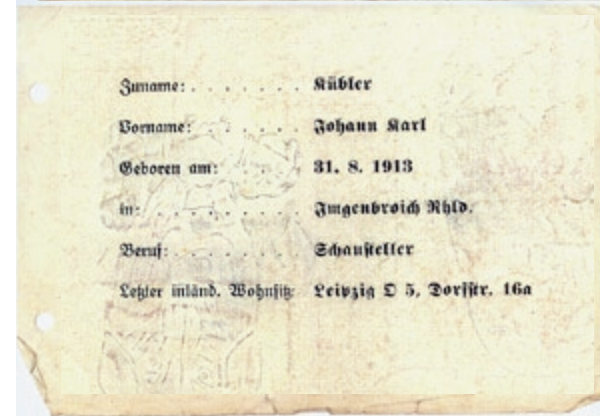 Zuname: . . . . . . . Kübler
Vorname: . . . . . . Johann Karl
Geboren am: . . . . 31. 8. 1913
in: . . . . . . . . . Imgenbroich Rhld.
Beruf: . . . . . . . . Schausteller
Letzter inländ. Wohnsitz: Leipzig O 5, Dorfstr. 16a